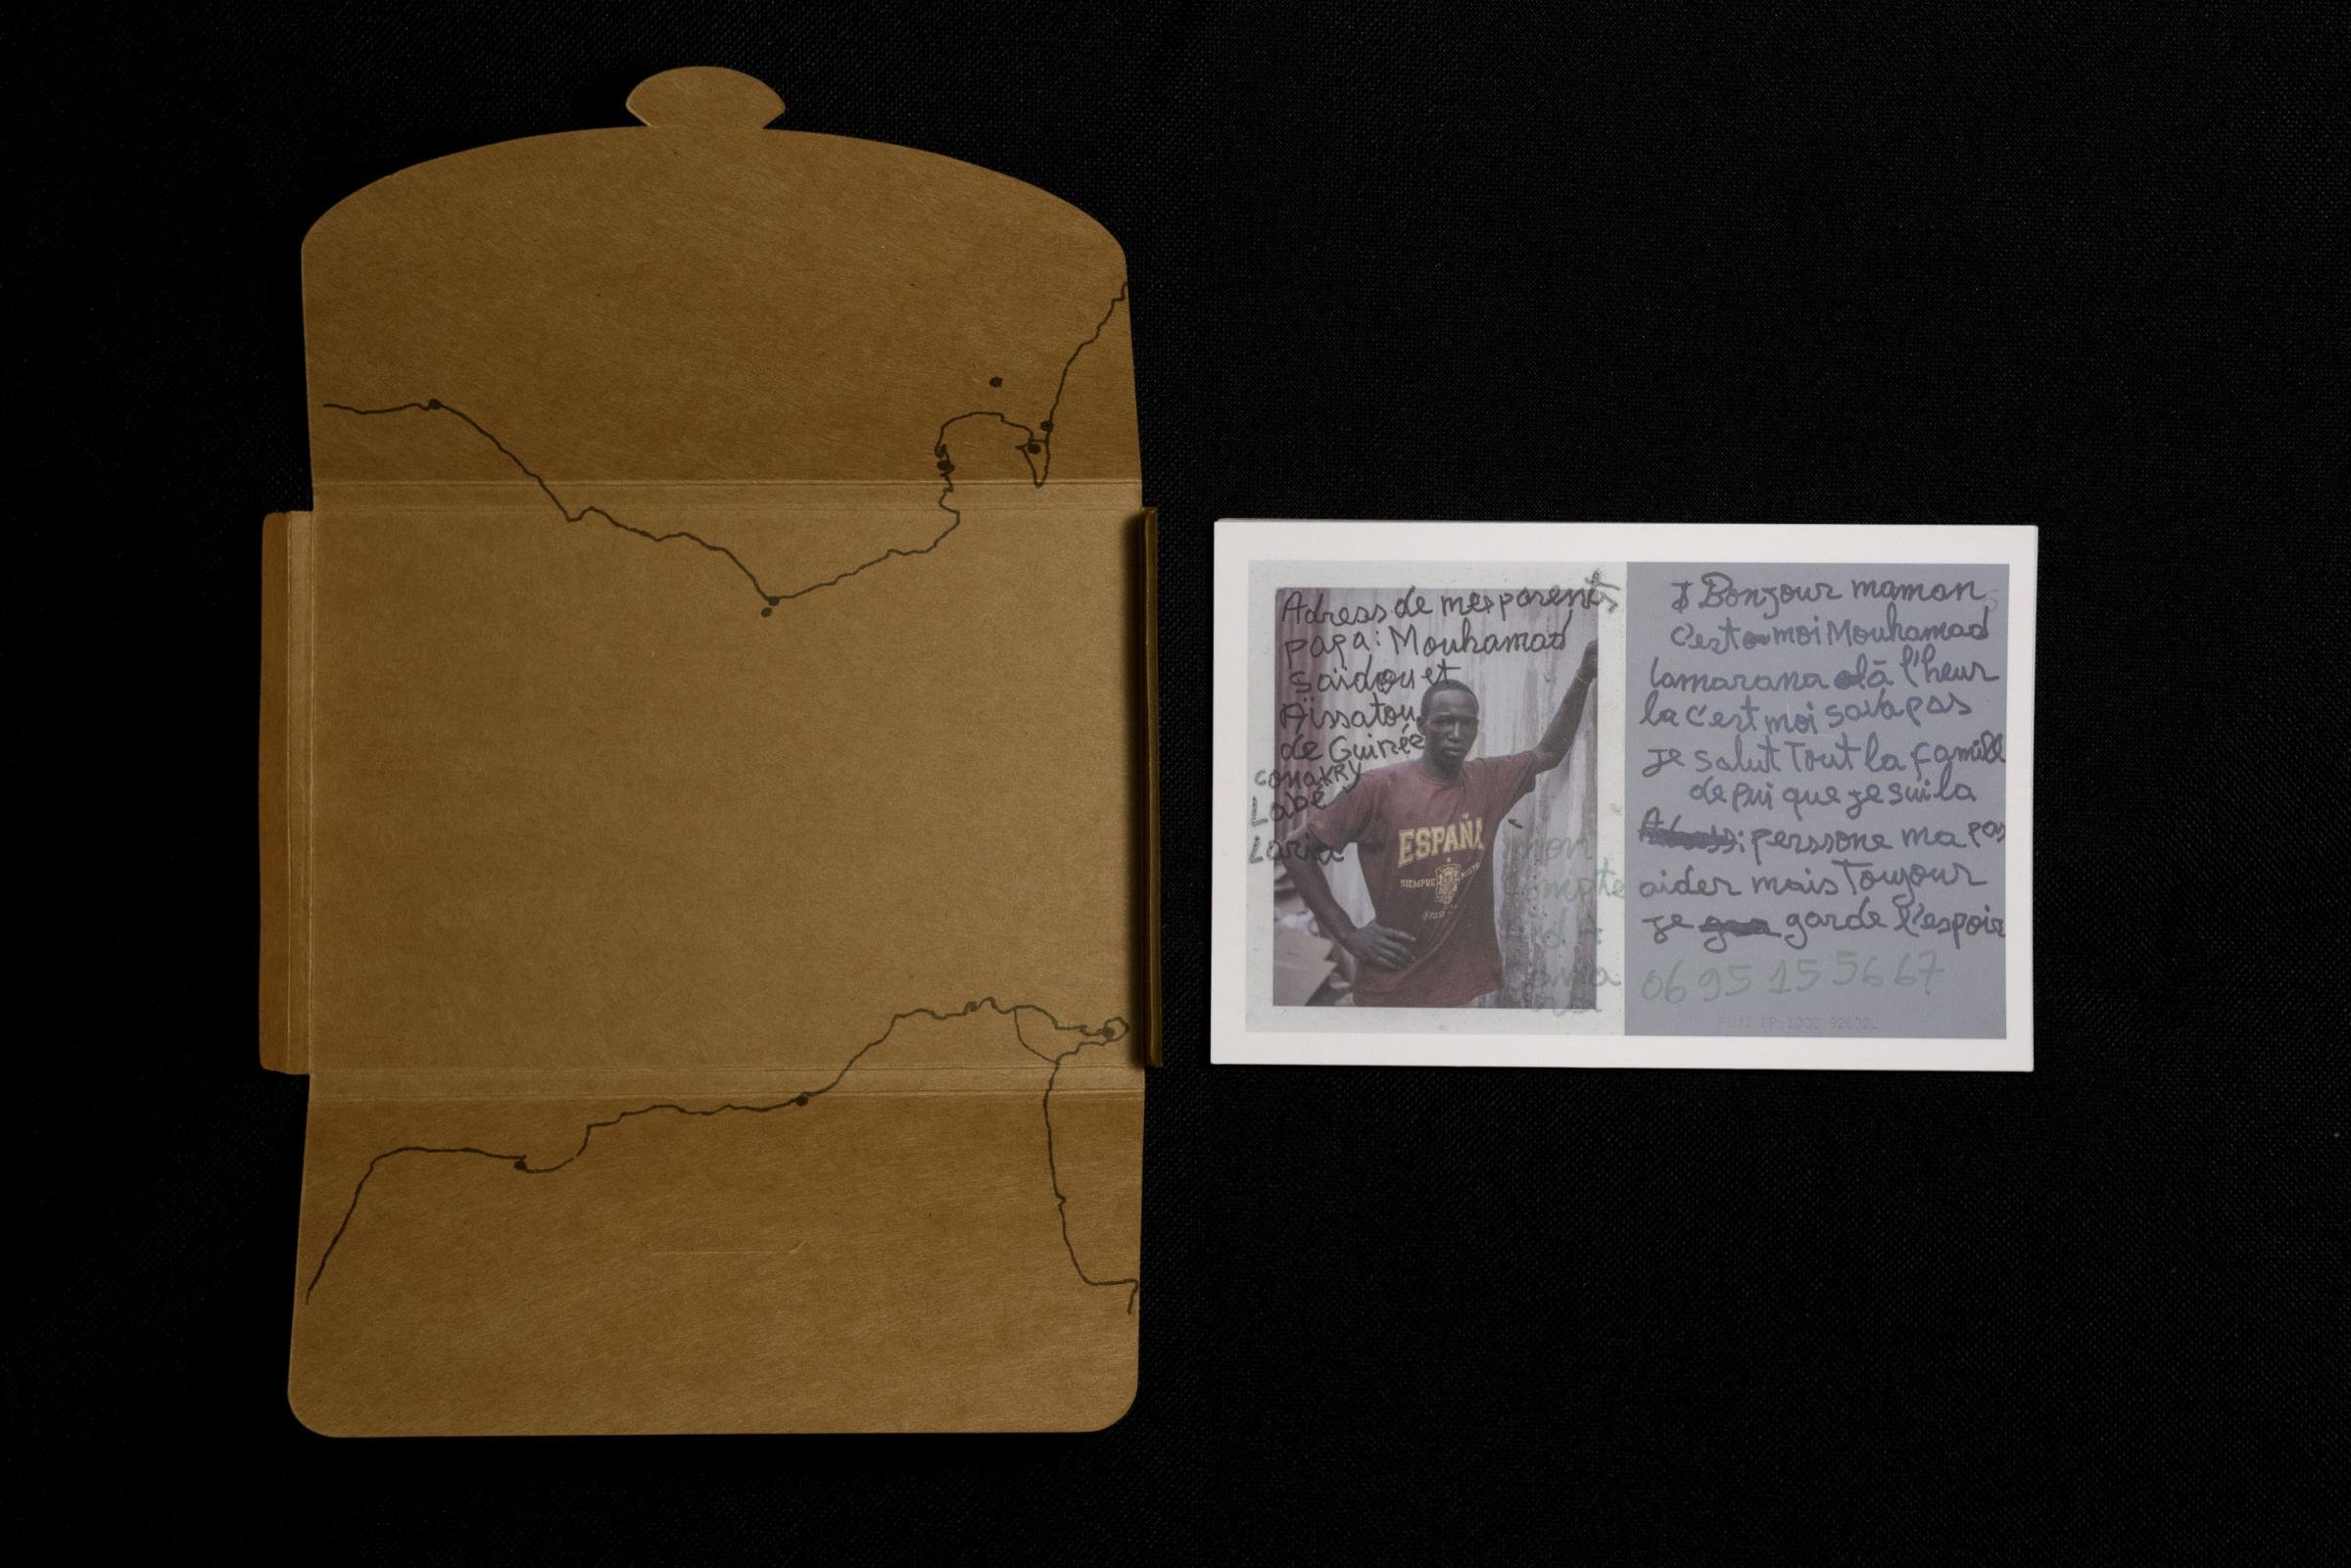 Adress de mes parents
papa: Mouhamad
saïdou et
Aïssatou
de Guinée
conakry
Labé
Laria
ESPAÑA
SIEMPRE
mon
compte
$ Bonjour maman
c'est moi Mouhamad
lamarana là l'heur
la c'est moi sava pas
je salut Tout la famille
depui que je sui la
Adress: persone ma pas
aider mais Toujour
je garde l'espoir
06 95 15 56 67